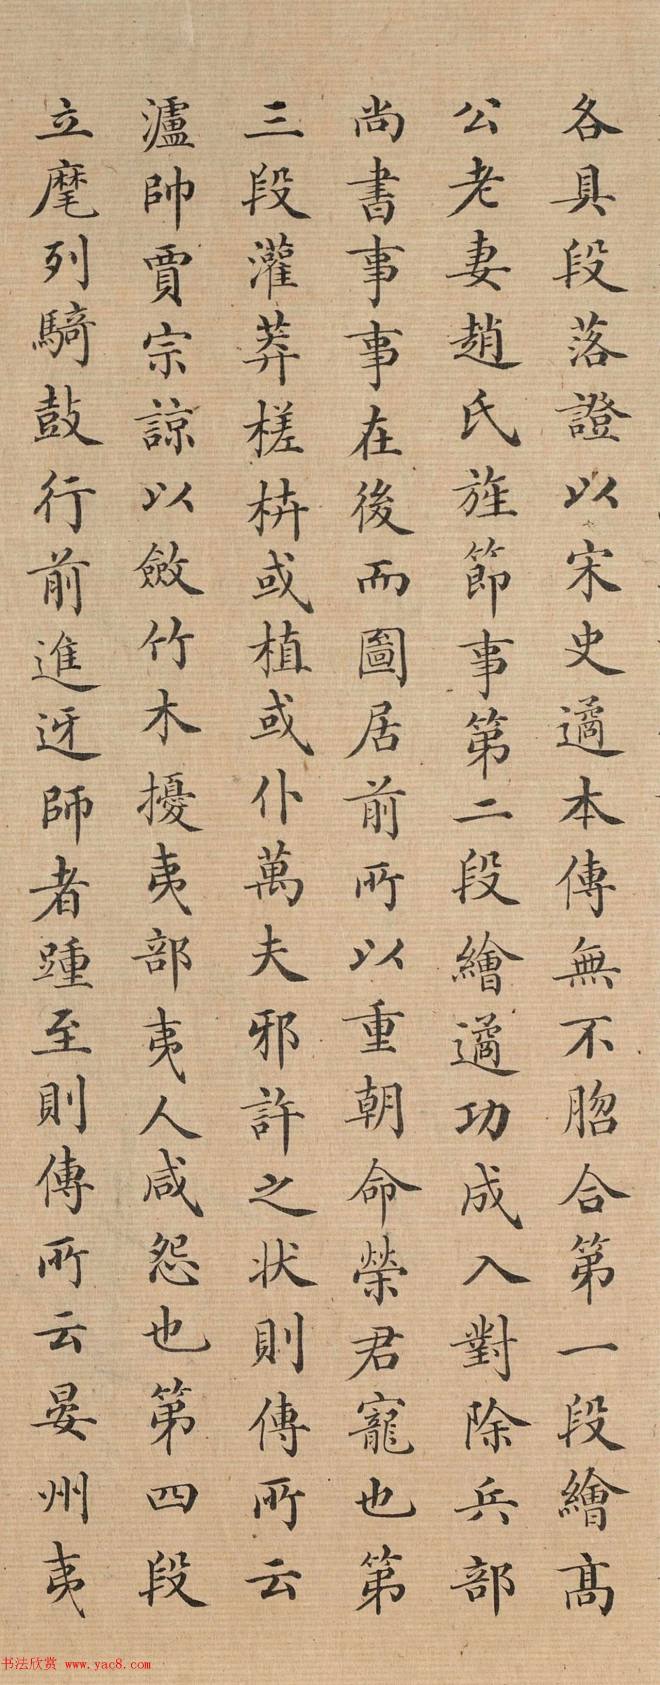 各具段落證以宋史遹本傳無不脗合第一段繪髙
公老妻趙氏旌節事第二段繪遹功成入對除兵部
尚書事事在後而圖居前所以重朝命榮君寵也第
三段灌莽槎枿或植或仆萬夫邪許之狀則傳所云
瀘帥賈宗諒以斂竹木擾夷部夷人咸怨也第四段
立麾列騎鼓行前進迓師者踵至則傳所云晏州夷
书法欣赏 www.yac8.com